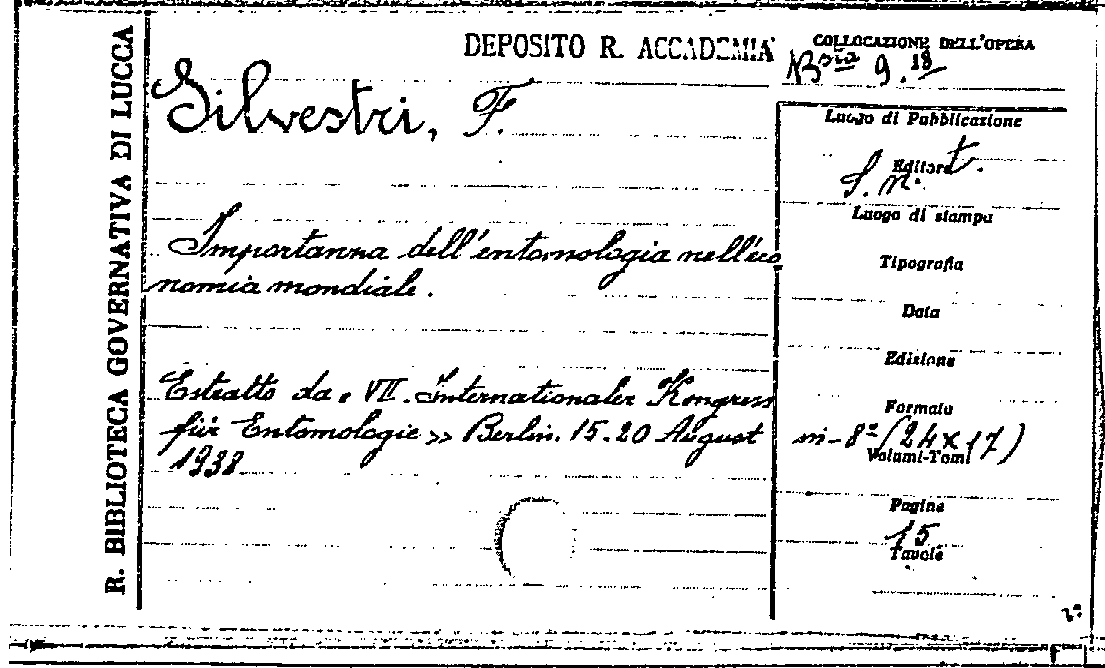 R. BIBLIOTECA GOVERNATIVA DI LUCCA
DEPOSITO R. ACCADEMIA
COLLOCAZIONE DELL'OPERA
Bsta 9.18
Silvestri, F.
Importanza dell'entomologia nell'eco
nomia mondiale.
Estratto da « VII. Internationaler Kongress
für Entomologie » Berlin. 15-20 August
1938
Luogo di Pubblicazione
Editore
S. n. t.
Luogo di stampa
Tipografia
Data
Edizione
Formato
in-8º (24x17)
Volumi-Tomi
Pagine
15
Tavole